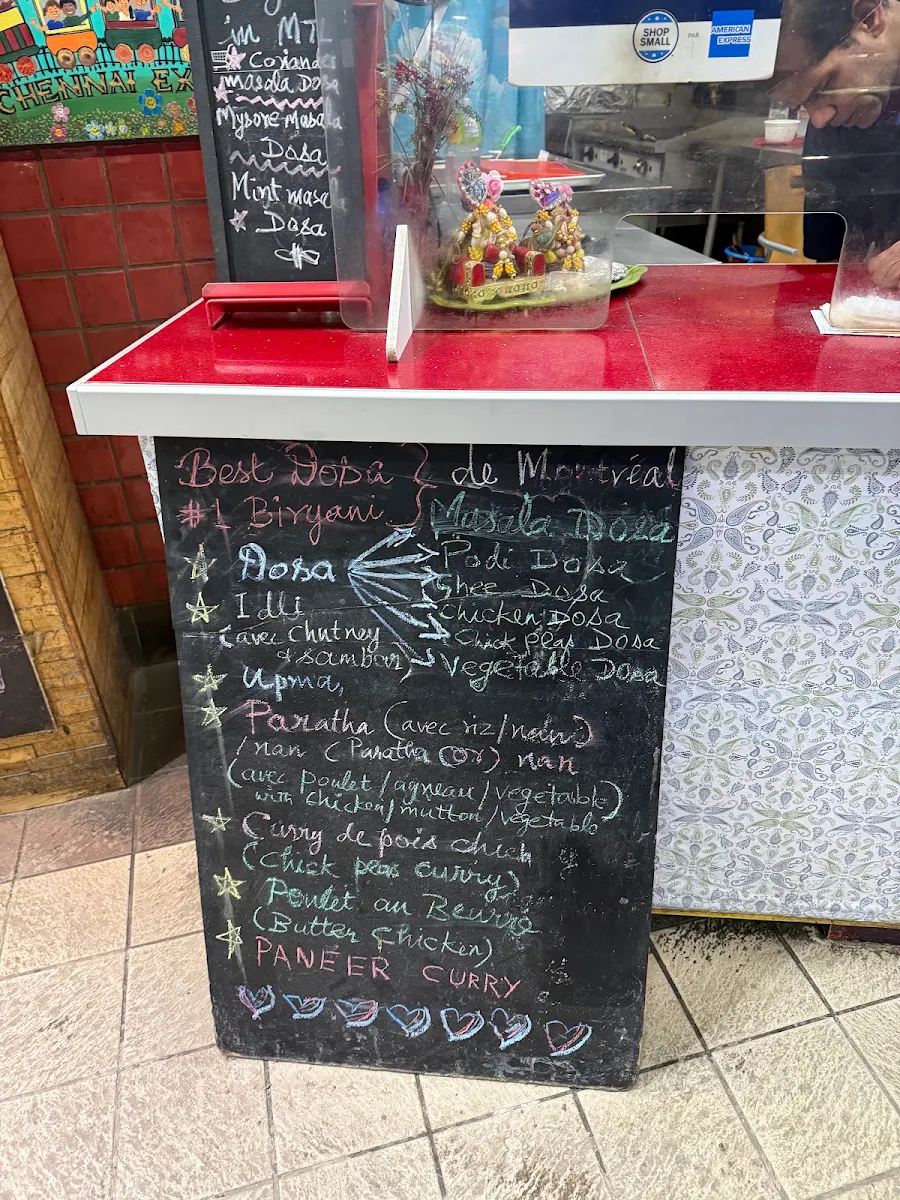 CHENNAI EX
in MTL
masala Dosa
Mysore Masala
Dosa
Mint masa
Dosa
SHOP
SMALL
PAR
AMERICAN
EXPRESS
Best Dosa } de Montréal
#1 Biryani
Masala Dosa
Dosa
Podi Dosa
Ghee Dosa
Chicken Dosa
Chick peas Dosa
Vegetable Dosa
Idli
(avec Chutney
& Sambar)
Upma,
Paratha (avec riz/nain)
/nan (Paratha (or) nan
(avec poulet/agneau/vegetable)
with chicken/mutton/vegetable
Curry de pois chich
(Chick peas curry)
Poulet au Beurre
(Butter chicken)
PANEER CURRY